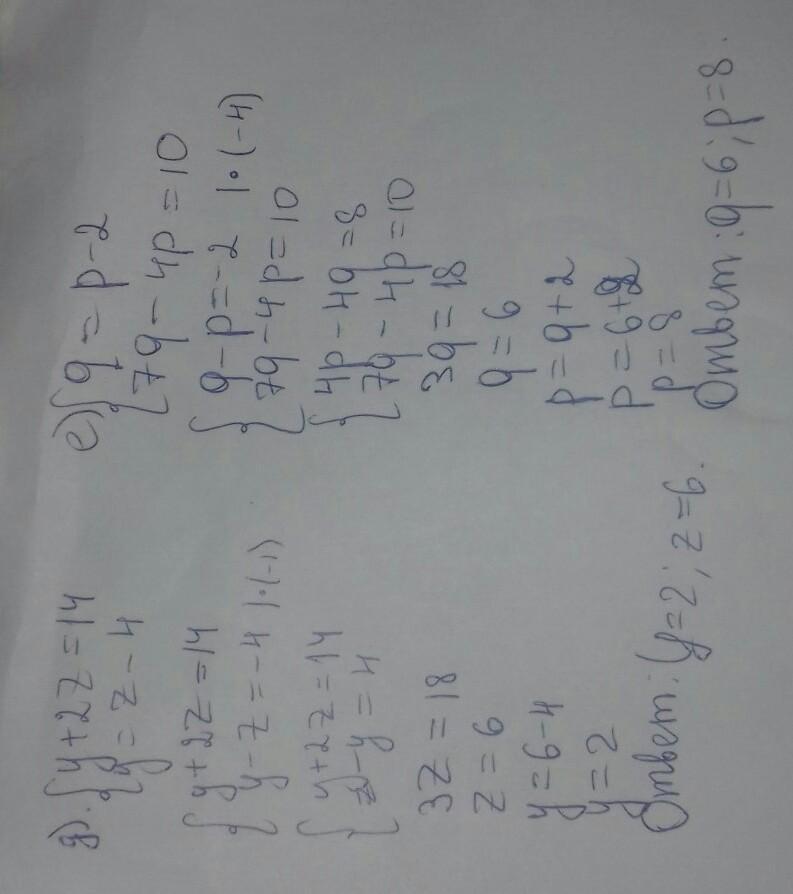 д). { y+2z=14
y=z-4
{ y+2z=14
y-z=-4 |·(-1)
{ y+2z=14
z-y=4
3z=18
z=6
y=6-4
y=2
Ответ: (y=2; z=6.
е) { q=p-2
7q-4p=10
{ q-p=-2 |·(-4)
7q-4p=10
{ 4p-4q=8
7q-4p=10
3q=18
q=6
p=q+2
p=6+2
p=8
Ответ: q=6; p=8.